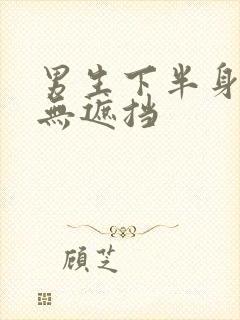 男生下半身
無遮挡
顾芝